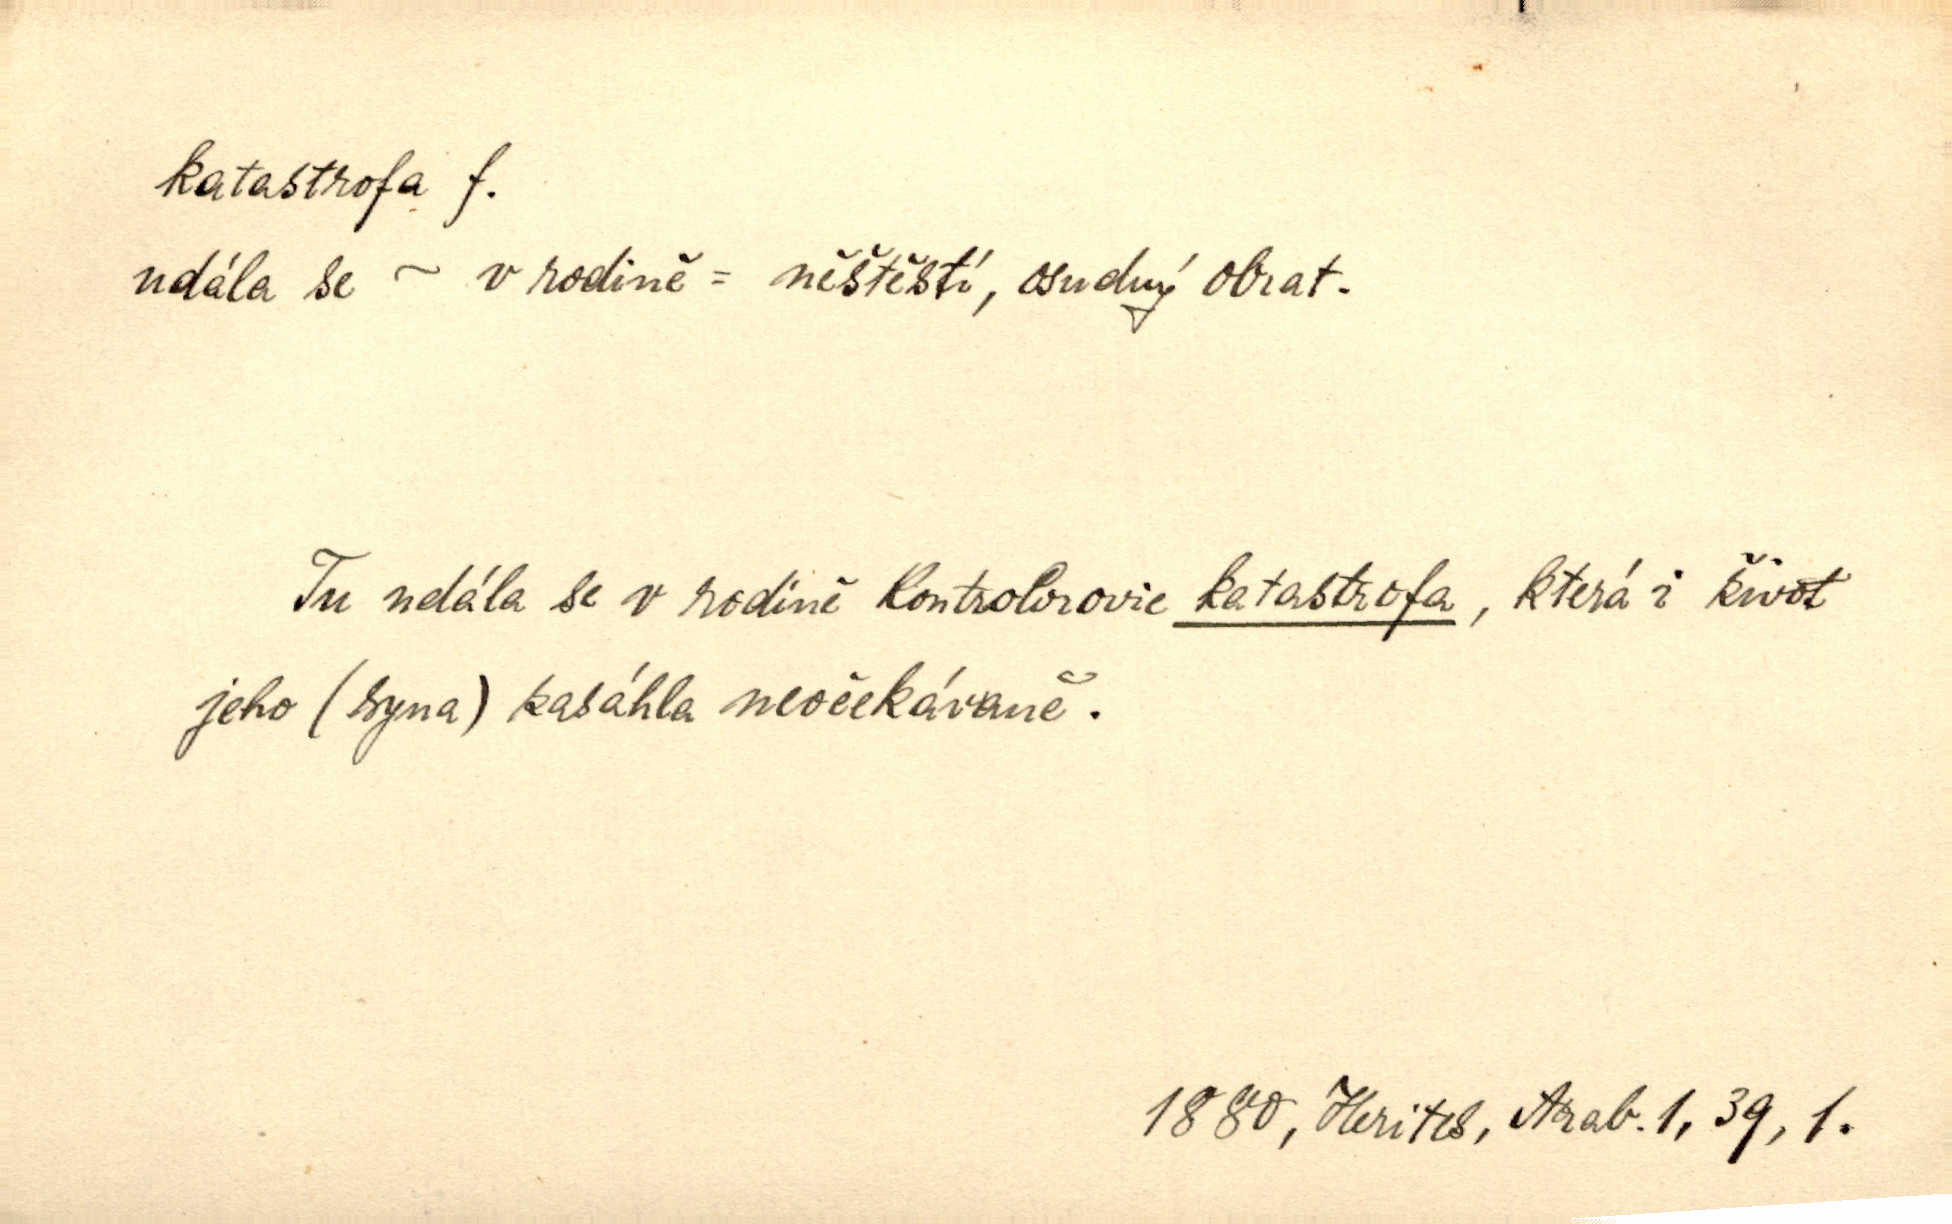 katastrofa f.
udála se ~ v rodině = něštěstí, osudný obrat.
Tu udála se v rodině kontrolorovic katastrofa, která i život
jeho (syna) zasáhla neočekávaně.
1880, Herites, Arab. 1, 39, 1.